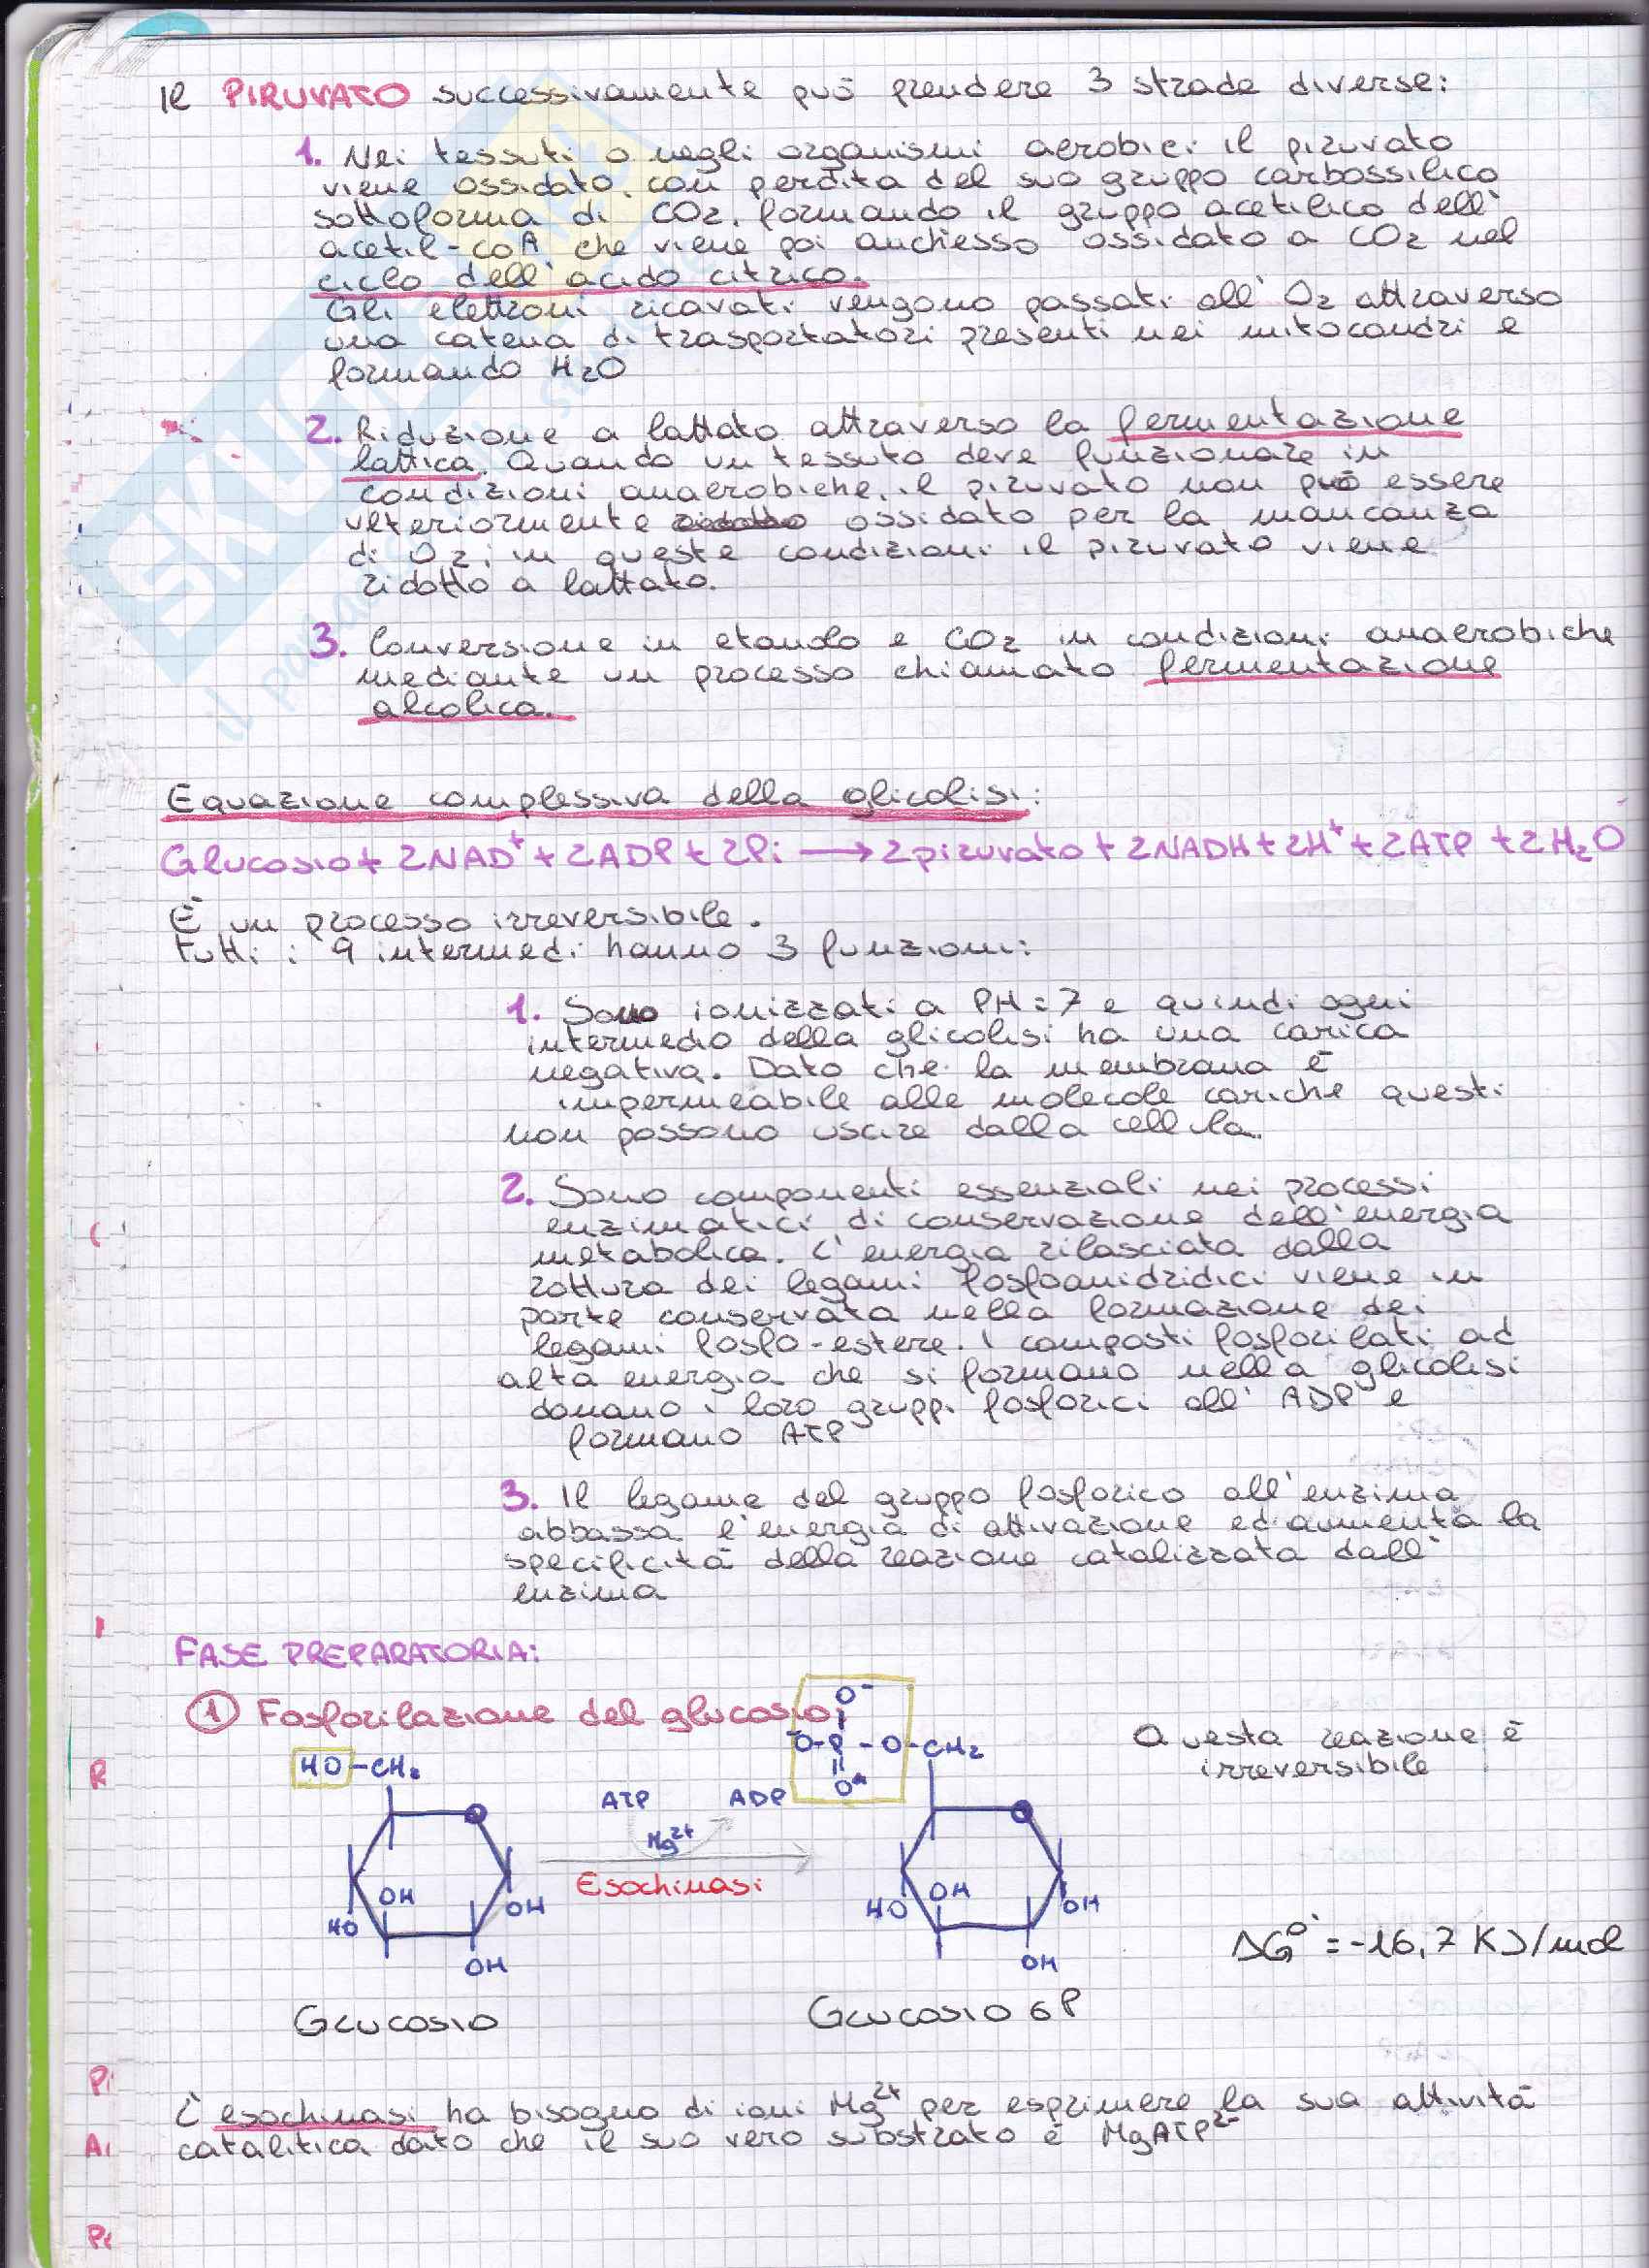 Il PIRUVATO successivamente può prendere 3 strade diverse:
1. Nei tessuti o negli organismi aerobici il piruvato
viene ossidato, con perdita del suo gruppo carbossilico
sottoforma di CO2, formando il gruppo acetilico dell'
acetil-CoA che viene poi anchesso ossidato a CO2 nel
ciclo dell'acido citrico.
Gli elettroni ricavati vengono passati all'O2 attraverso
una catena di trasportatori presenti nei mitocondri e
formando H2O
2. Riduzione a lattato attraverso la fermentazione
lattica. Quando un tessuto deve funzionare in
condizioni anaerobiche, il piruvato non può essere
ulteriormente ossidato per la mancanza
di O2; in queste condizioni il piruvato viene
ridotto a lattato.
3. Conversione in etanolo e CO2 in condizioni anaerobiche
mediante un processo chiamato fermentazione
alcolica.
Equazione complessiva della glicolisi:
Glucosio + 2NAD⁺ + 2ADP + 2Pi → 2piruvato + 2NADH + 2H⁺ + 2ATP + 2H2O
È un processo irreversibile.
Tutti i 9 intermedi hanno 3 funzioni:
1. Sono ionizzati a PH=7 e quindi ogni
intermedio della glicolisi ha una carica
negativa. Dato che la membrana è
impermeabile alle molecole cariche questi
non possono uscire dalla cellula.
2. Sono componenti essenziali nei processi
enzimatici di conservazione dell'energia
metabolica. L'energia rilasciata dalla
rottura dei legami fosfoanidridici viene in
parte conservata nella formazione dei
legami fosfo-estere. I composti fosforilati ad
alta energia che si formano nella glicolisi
donano i loro gruppi fosforici all'ADP e
formano ATP
3. Il legame del gruppo fosforico all'enzima
abbassa l'energia di attivazione ed aumenta la
specificità della reazione catalizzata dall'
enzima
FASE PREPARATORIA:
1 Fosforilazione del glucosio
O⁻
⁻O-P-O-CH2
O
Questa reazione è
irreversibile
HO-CH2
ATP ADP
Mg²⁺
Esochinasi
OH
HO
OH
OH
OH
HO
OH
OH
ΔG°' = -16,7 KJ/mol
Glucosio
Glucosio 6P
L'esochinasi ha bisogno di ioni Mg²⁺ per esprimere la sua attività
catalitica dato che il suo vero substrato è MgATP²⁻
R
Pi
A1